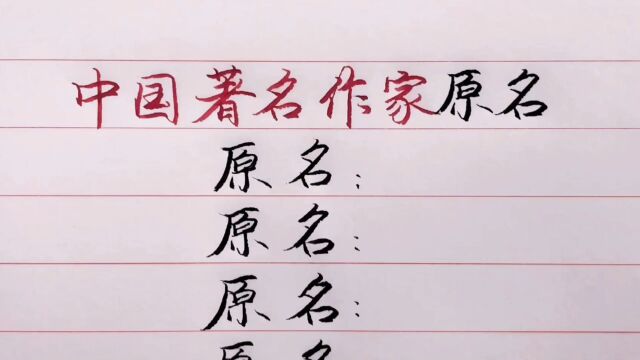 中国著名作家原名
原名：
原名：
原名：
原名